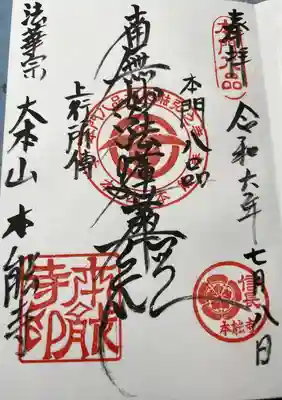 奉拝
本門八品
令和六年七月八日
信長
本能寺
本門八品
南無妙法蓮華経
上行所傳
法華宗
大本山本能寺
本能寺印